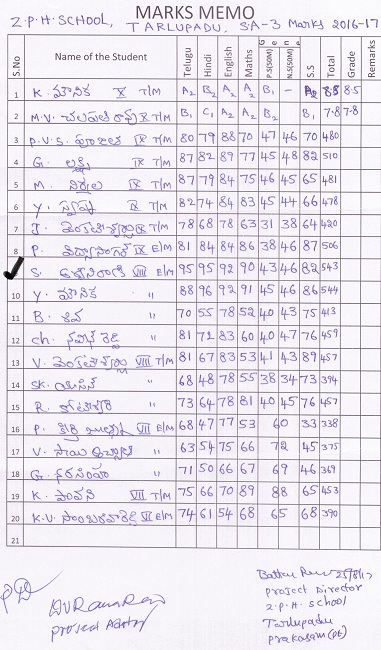 MARKS MEMO
Z.P.H. SCHOOL, TARLUPADU, SA-3 Marks 2016-17
S.No Name of the Student Telugu Hindi English Maths General P.S(50M) N.S(50M) S.S Total Grade Remarks
1 K. మౌనిక X T/M A2 B2 A2 A2 B1 - A2 8.8 8.5
2 M.V. X T/M B1 C1 A2 A2 B2 B1 7.8 7.8
3 P.V.S. IX T/M 80 79 88 70 47 46 70 480
4 G. లక్ష్మి IX T/M 87 82 89 77 45 48 82 510
5 M. నిర్మల IX T/M 87 79 84 75 46 45 65 481
6 Y. స్వప్న IX T/M 82 74 84 83 45 44 66 478
7 J. వెంకటేశ్వర్లు IX T/M 78 68 78 63 31 38 64 420
8 P. IX E/M 81 84 84 86 38 46 87 506
S. VIII E/M 95 95 92 90 43 46 82 543
10 Y. మౌనిక " 88 96 92 91 45 46 86 544
11 B. శివ " 70 55 78 52 40 43 75 413
12 Ch. నవీన్ రెడ్డి " 81 72 83 60 40 47 76 459
13 V. వెంకటేశ్వర్లు VIII T/M 81 67 83 53 41 43 89 457
14 SK. యాసిన్ " 68 48 78 55 38 34 73 394
15 R. " 73 64 78 81 40 45 76 457
16 P. VII E/M 68 47 77 53 60 33 338
17 V. సాయి " 63 54 75 66 72 45 375
18 G. నరసింహ " 71 50 66 67 69 46 369
19 K. పావని VII T/M 75 66 70 89 88 65 453
20 K.V. VI E/M 74 61 54 68 65 68 390
21
25/8/17
Project Director
Z.P.H. School
Tarlupadu
Prakasam (Dt)